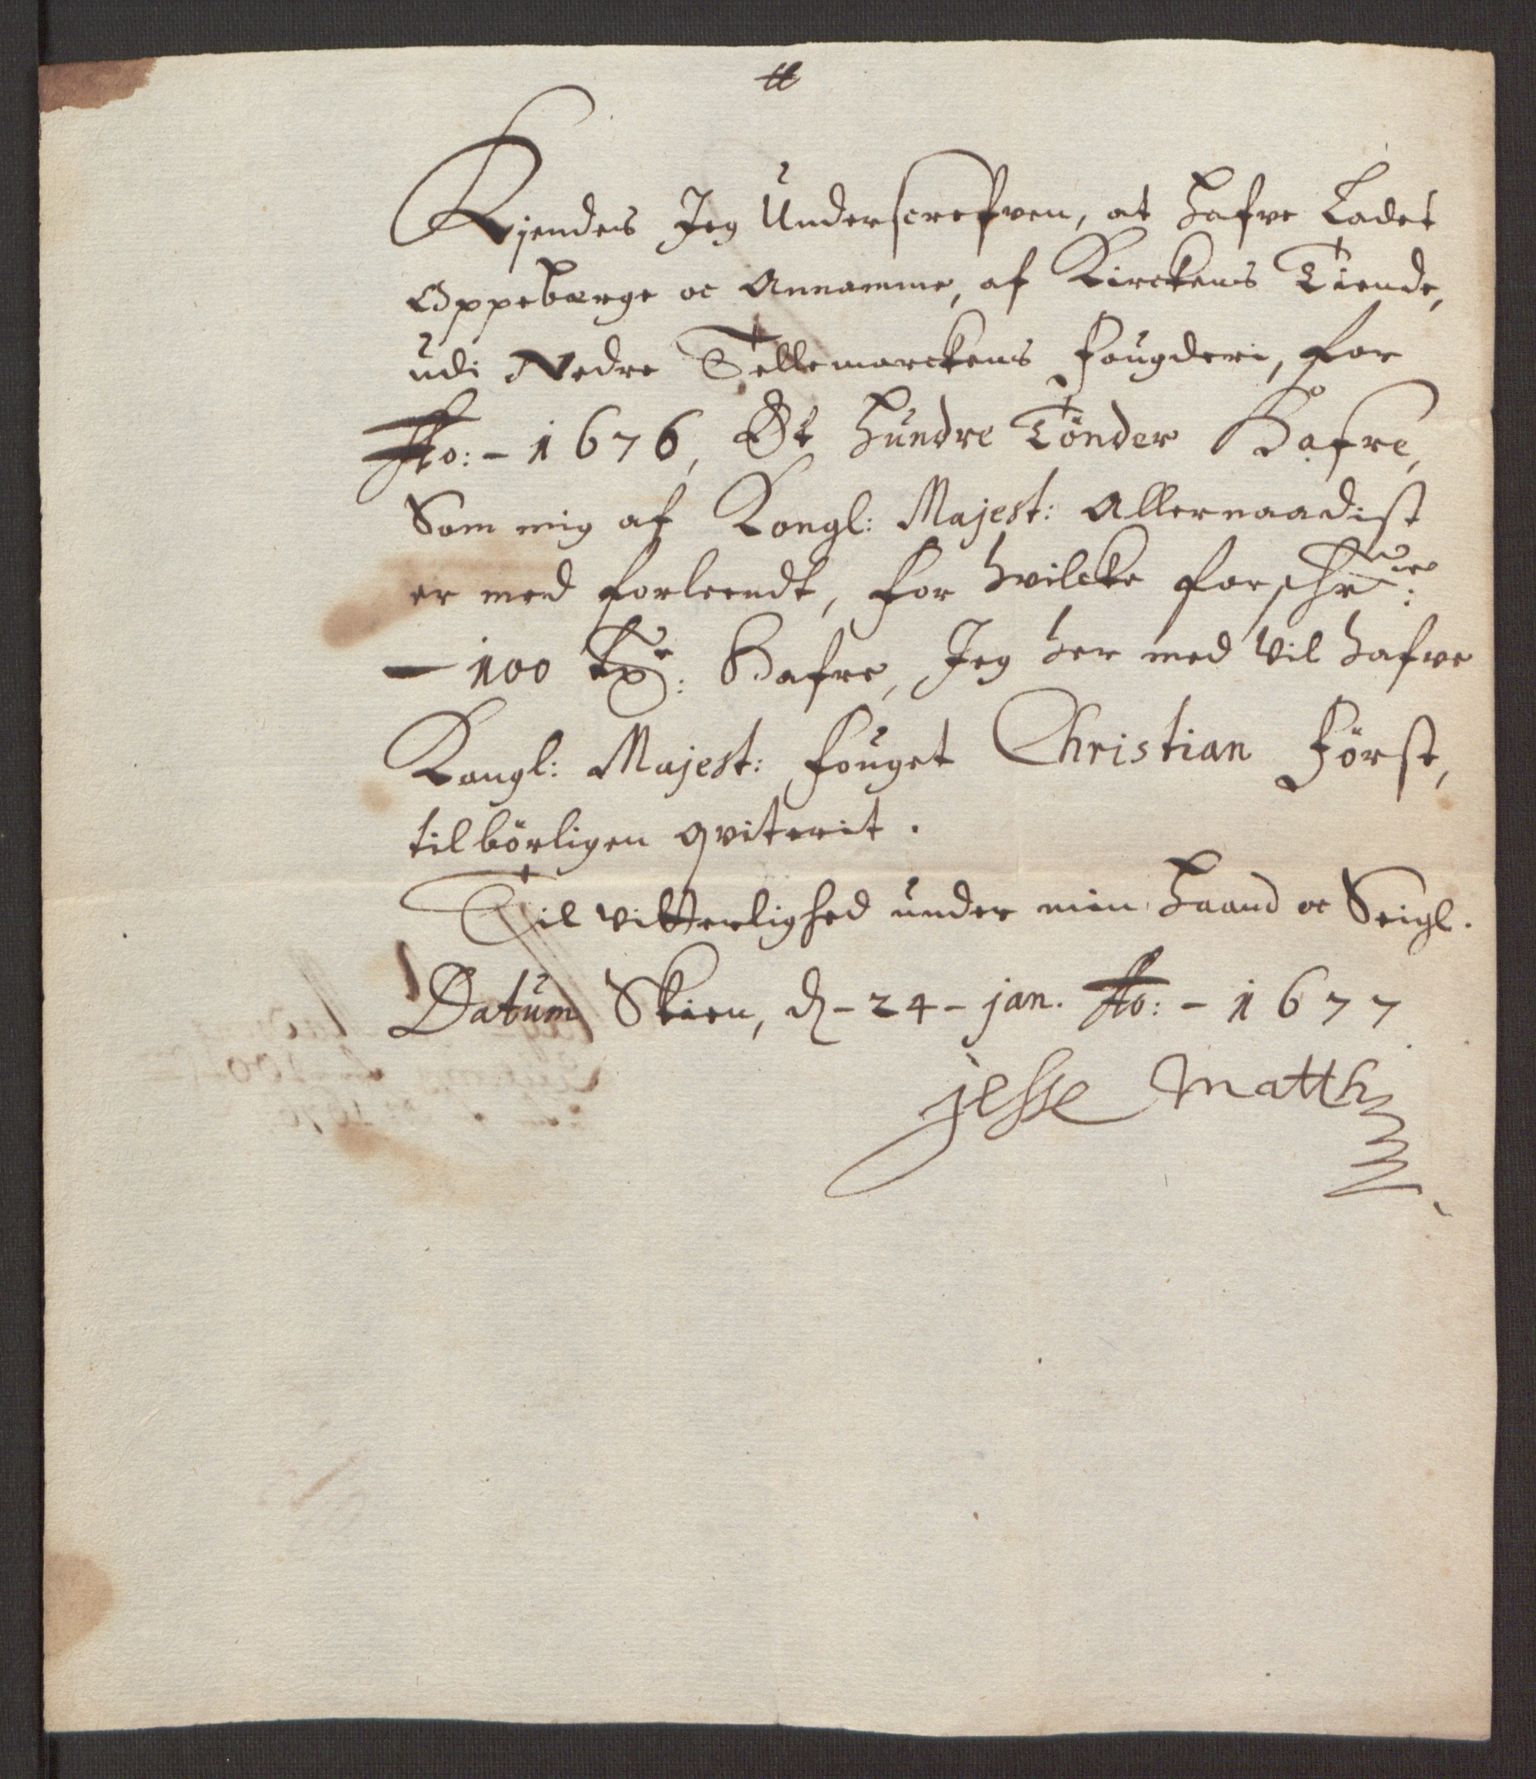 Kjendes Jeg Underscrefven, at hafve Ladet
Oppebærge oc Annamme, af Kirckens Tiende,
udi Nedre Tellemarckens fougderi, for
Ao: - 1676, Et hundre Tönder Hafre,
Som mig af Kongl: Majest: Allernaadist
er med forleendt, for hvilcke forschr:
- 100 Tr: Hafre, Jeg her med Vil hafve
Kongl: Majest: fouget Christian Först,
tilbörligen qviterit.
Til vitterlighed under min haand oc Seigl.
Datum Skien, d - 24 - jan. Ao: - 1677
jesse Matth